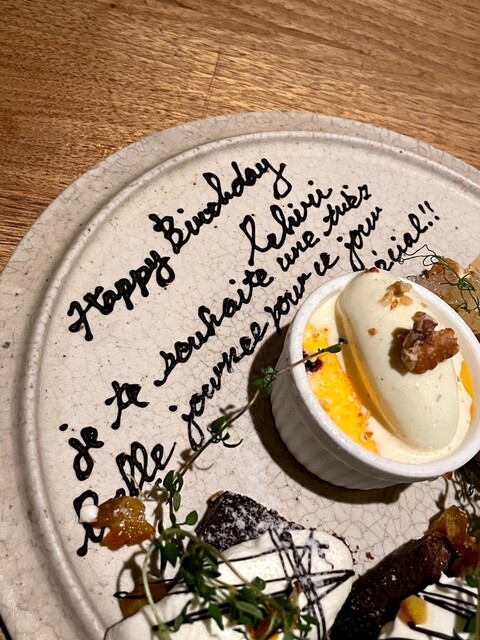 Happy Birthday
je te souhaite une très
Belle journée pour ce jour
écial!!